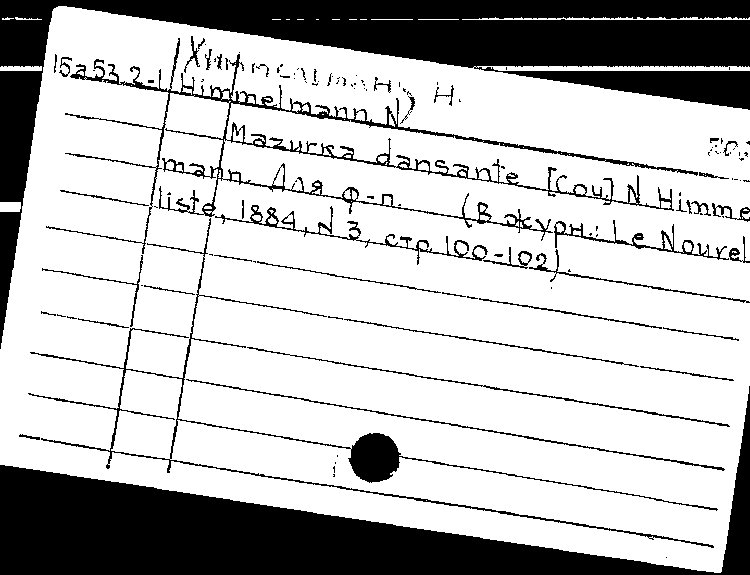 Химмельманъ Н.
15а53.2-1 Himmelmann, N.
Mazurka dansante [Соч] N. Himme
mann. Для ф-п. (В журн.: Le Nouvel
liste, 1884, N 3, стр. 100-102).